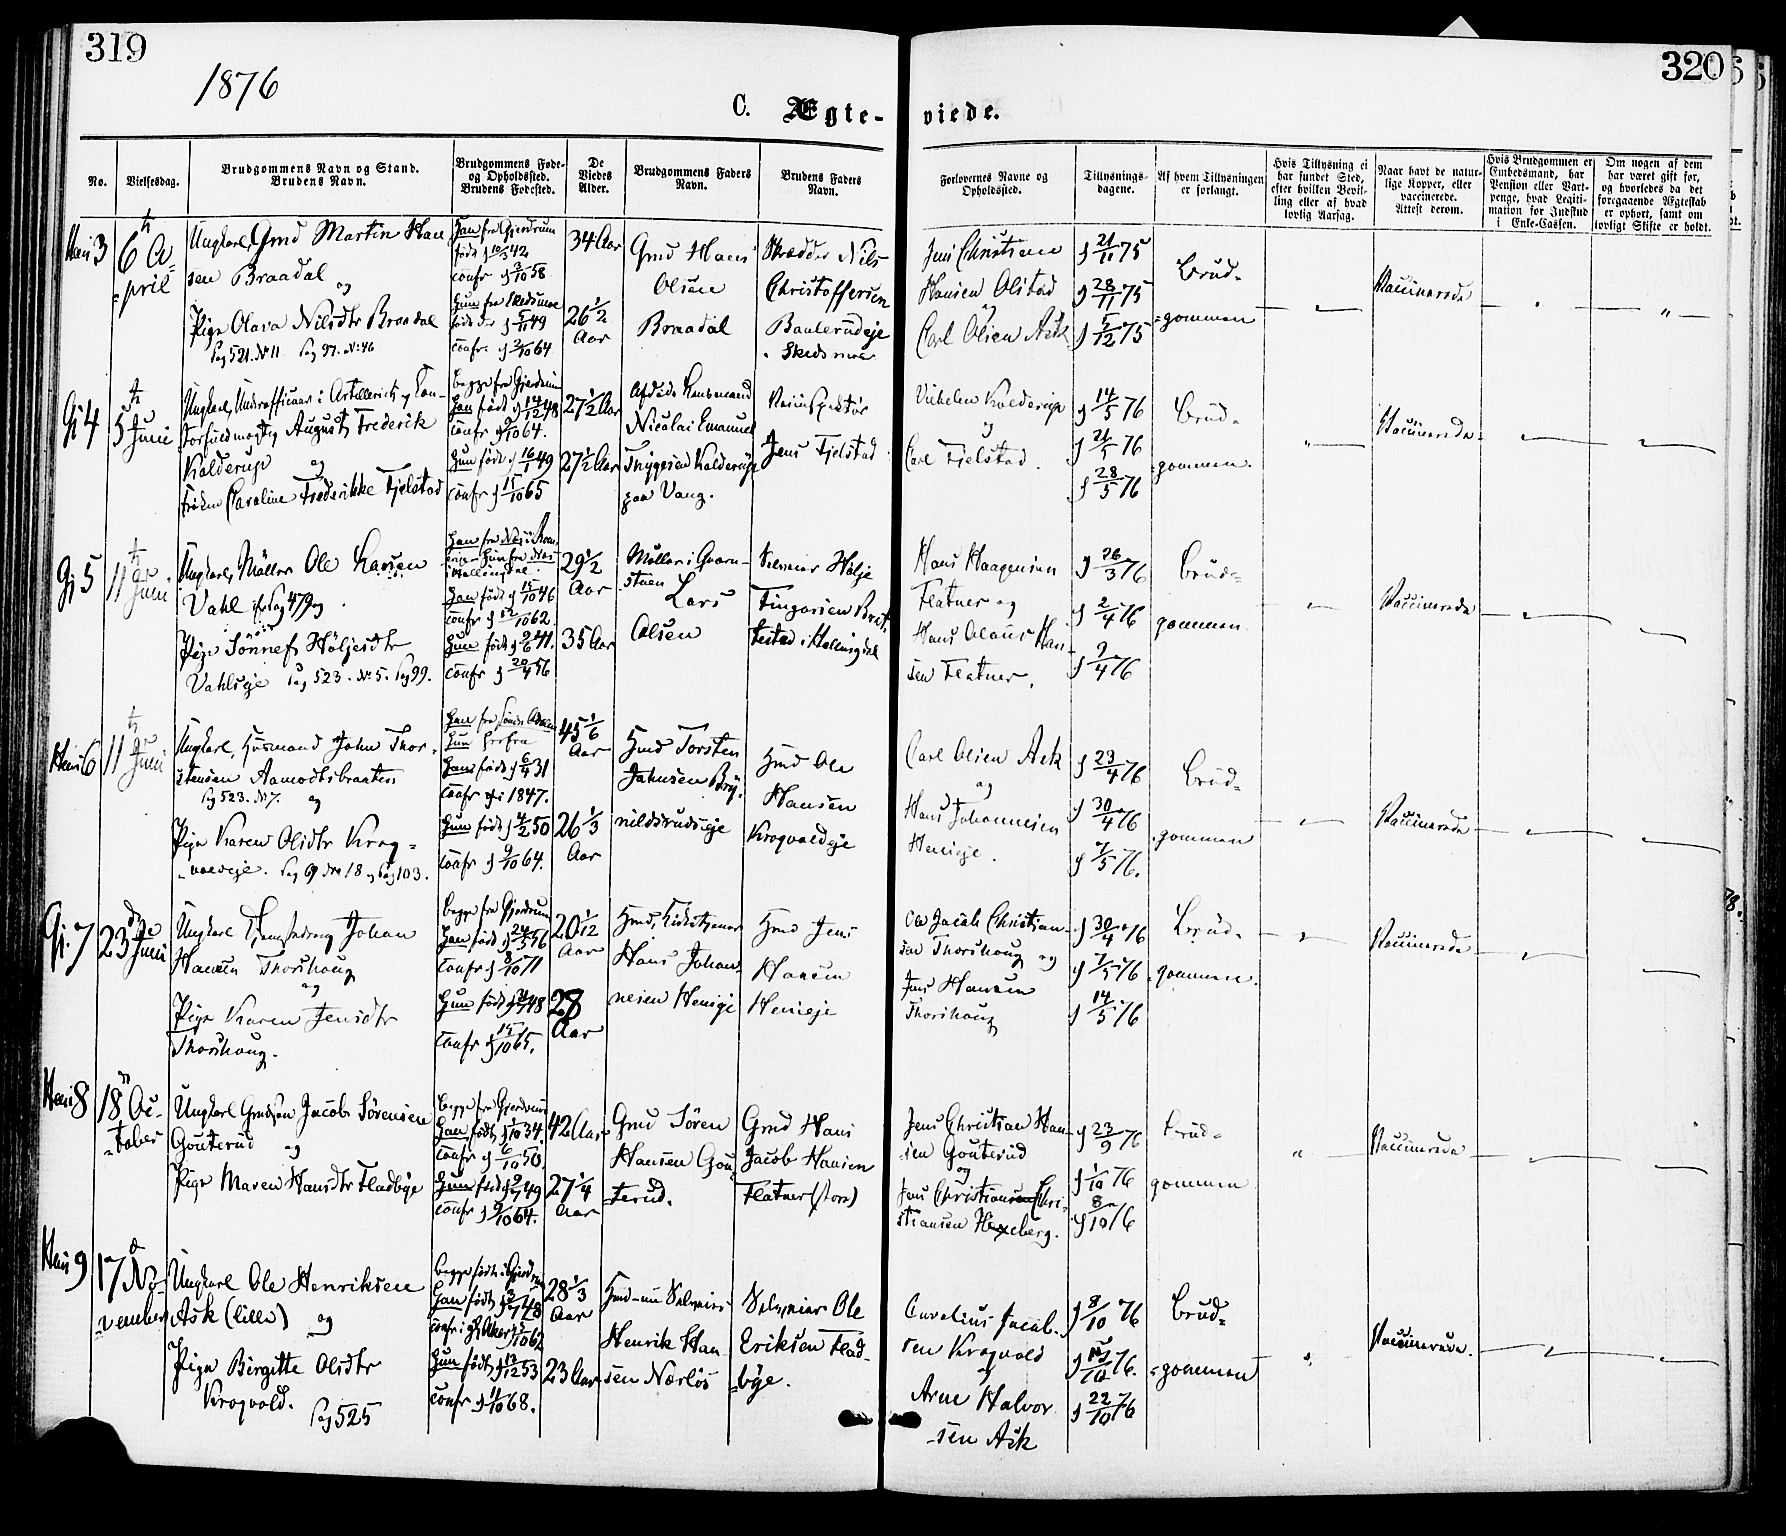 319
320
1876
C. Ægte-
viede.
No.
Vielsesdag.
Brudgommens Navn og Stand.
Brudens Navn.
Brudgommens Føde-
og Opholdssted.
Brudens Fødested.
De
Viedes
Alder.
Brudgommens Faders
Navn.
Brudens Faders
Navn.
Forlovernes Navne og
Opholdssted.
Tillysnings-
dagene.
Af hvem Tillysningen
er forlangt.
Hvis Tillysning ei
har fundet Sted,
efter hvilken Bevil-
ling eller af hvad
lovlig Aarsag.
Naar havt de natur-
lige Kopper, eller
vaccinerede.
Attest derom.
Hvis Brudgommen er
Embedsmand, har
Pension eller Vart-
penge, hvad Legiti-
mation for Indskud
i Enke-Cassen.
Om nogen af dem
har været gift før,
og hvorledes da det
foregaaende Ægteskab
er ophørt, samt om
lovligt Skifte er holdt.
3
6 A-
pril
Ungkarl, Gmd Martin Han
sen Braadal
og
Pige Olava Nilsdtr Braadal
Pag 521. No 11 Pag 97. No 46
Han fra Gjerdrum
født
42
confr 3/10 58
Hun fra Skedsmoe
født 5/11 49
confr. 2/10 64
34 Aar
26 1/2
Aar
Gmd Hans
Olsen
Braadal
Skrædder Nils
Christoffersen
Skedsmoe
Jens Christian
Hansen Olstad
og
Carl Olsen Ask
21/11 75
28/11 75
5/12 75
Brud-
gommen
Vaccinerede
Gj 4
5te
Juni
Ungkarl, Underofficeer i Artilleriet og
August Frederik
Kolderup
og
Frøken Caroline Frederikke Fjelstad
begge fra Gjerdrum
Han født 14/12 48
confr 64.
Hun født 16/1 49
confr 15/10 65
27 1/2 Aar
27 1/2 Aar
Nicolai Emanuel
Thygesen Kolderup
paa Vang.
Veiinspektør
Jens Fjelstad
Vilhelm Kolderup
og
Carl Fjelstad.
14/5 76
21/5 76
28/5 76
Brud-
gommen.
Vaccinerede
Gj 5
11te
Juni
Ungkarl, Møller Ole Larsen
Vahl Pag 479 og
Pige Sønnef Høljesdtr
Vahlseje Pag 523. No 5. Pag 99.
Han født 15/10 46
confr 12/10 62.
Hun født 2/6 41.
confr 20/4 56
29 1/2
Aar
35 Aar
Møller i Qvern-
stuen
Lars
Olsen
Selveier Hølje
Hans Haagensen
Flatner og
Hans Olaus Han-
sen Flatner.
26/3 76
2/4 76
9/4 76
Brud-
gommen
Vaccinerede
6
11te
Juni
Ungkarl, Husmand John Thor-
stensen Aamodtsbraaten
Pag 523. No 7. og
Pige Karen Olsdtr Krog-
Pag 103.
Hun herfra
Han født 6/4 31
confr i 1847.
Hun født 4/2 50
confr 9/10 64.
45 1/6
Aar
26 1/3
Aar
Hmd Torsten
Johnsen Bry-
nildsrudseje
Hmd Ole
Hansen
Krogvoldeje
Carl Olsen Ask
og
Hans Johannesen
Henieje.
23/4 76
30/4 76
7/5 76.
Brud-
gommen
Vaccinerede
Gj. 7
23de
Juni
Ungkarl Johan
Hansen Thorshoug
og
Pige Karen Jensdtr
Thorshoug.
begge fra Gjerdrum
Han født 24/5 56
confr 8/10 71
Hun født 48
confr 15/10 65.
20 1/12
Aar
28
Aar
Hmd, Kirketjener
Hans Johan-
nesen Henieje
Hmd Jens
Hansen
Henieje
Ole Jacob Christian-
sen Thorshoug og
Jens Hansen
Thorshoug
30/4 76
7/5 76
14/5 76
Brud-
gommen.
Vaccinerede
8
18de Oc-
tober
Ungkarl Gmdsøn Jacob Sørensen
Gouterud
og
Pige Maren Hansdtr Fladbye
begge fra Gjerdrum
Han født 1/10 34.
confr 6/10 50.
Hun født 49
confr 9/10 64.
42 Aar
27 1/4
Aar
Gmd Søren
Hansen Gou
terud.
Gmd Hans
Jacob Hansen
Flatner (store)
Jens Christian Han-
sen Gouterud
og
Jens Christiansen Chri-
stiansen Hexeberg.
23/9 76
1/10 76
8/10 76
Brud-
gommen
Vaccinerede
9
17de No-
vember
Ungkarl Ole Henriksen
Ask (lille) og
Pige Birgitte Olsdtr
Krogvold.
Pag 525
begge født i Gjerdrum
Han født 3/7 48
Hun født 13/12 53
confr 11/10 68.
28 1/3
Aar
23 Aar
Henrik Han
sen Nærløs
Selveier Ole
Eriksen Flad-
bye.
Cornelius Jacob-
sen Krogvold
og
Arne Halvor
-sen Ask
8/10 76
15/10 76.
22/10 76
Brud-
gommen
Vaccinerede.